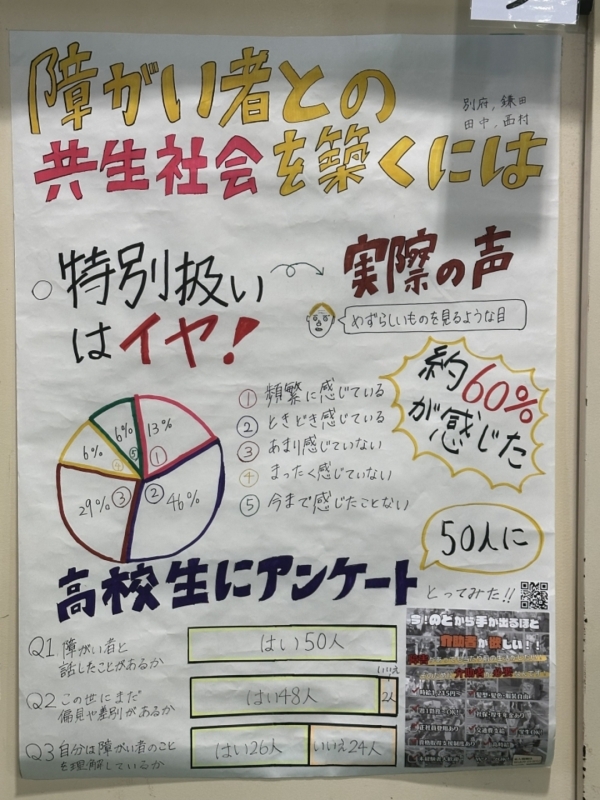 障がい者との
共生社会を築くには
別府，鎌田
田中，西村
特別扱い
はイヤ!
実際の声
めずらしいものを見るような目
約60%
が感じた
① 頻繁に感じている
② ときどき感じている
③ あまり感じていない
④ まったく感じていない
⑤ 今まで感じたことない
6%
13%
6%
⑤
①
④
29%
③
②
46%
50人に
高校生にアンケート
とってみた!!
Q1 障がい者と
話したことがあるか
はい50人
いいえ
Q2 この世にまだ
偏見や差別があるか
はい48人
2人
Q3 自分は障がい者のこと
を理解しているか
はい26人
いいえ24人
今!のどから手が出るほど
介助者が欲しい!!